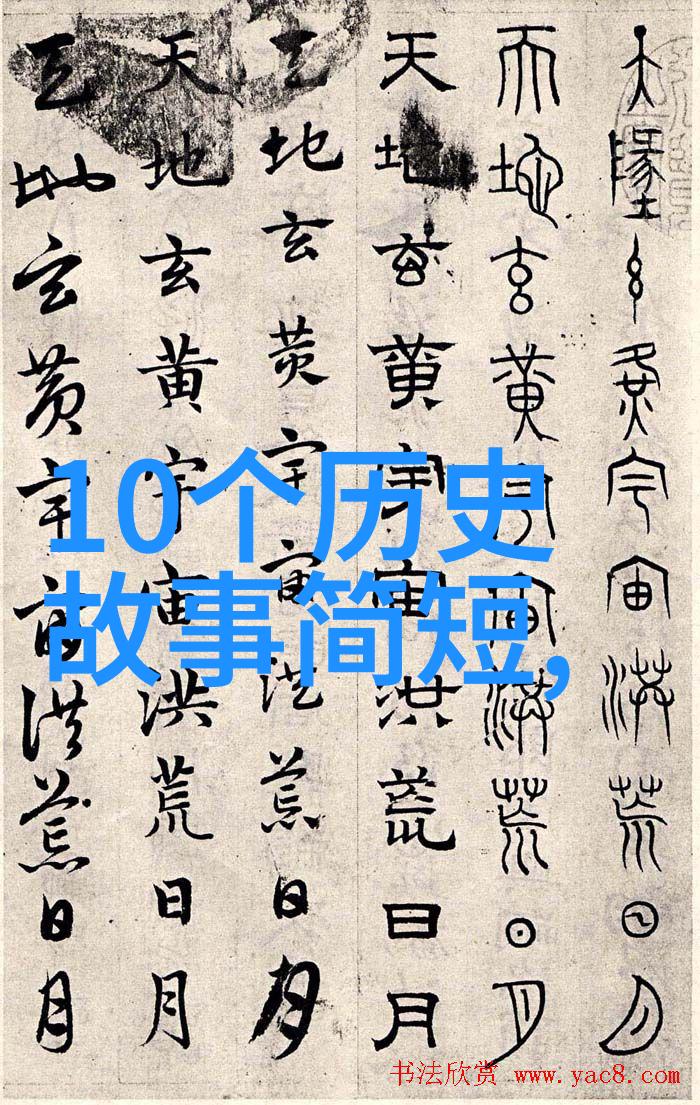 天墬玄黄宇宙洪荒日月
天地玄黄宇宙洪荒日月
天地玄黄宇宙洪荒日月
天地玄黄宇宙洪荒日月
天地玄黄宇宙洪荒日月
天地玄黄宇宙洪荒日月
10个历史
故事简短,
书法欣赏 www.yac8.com